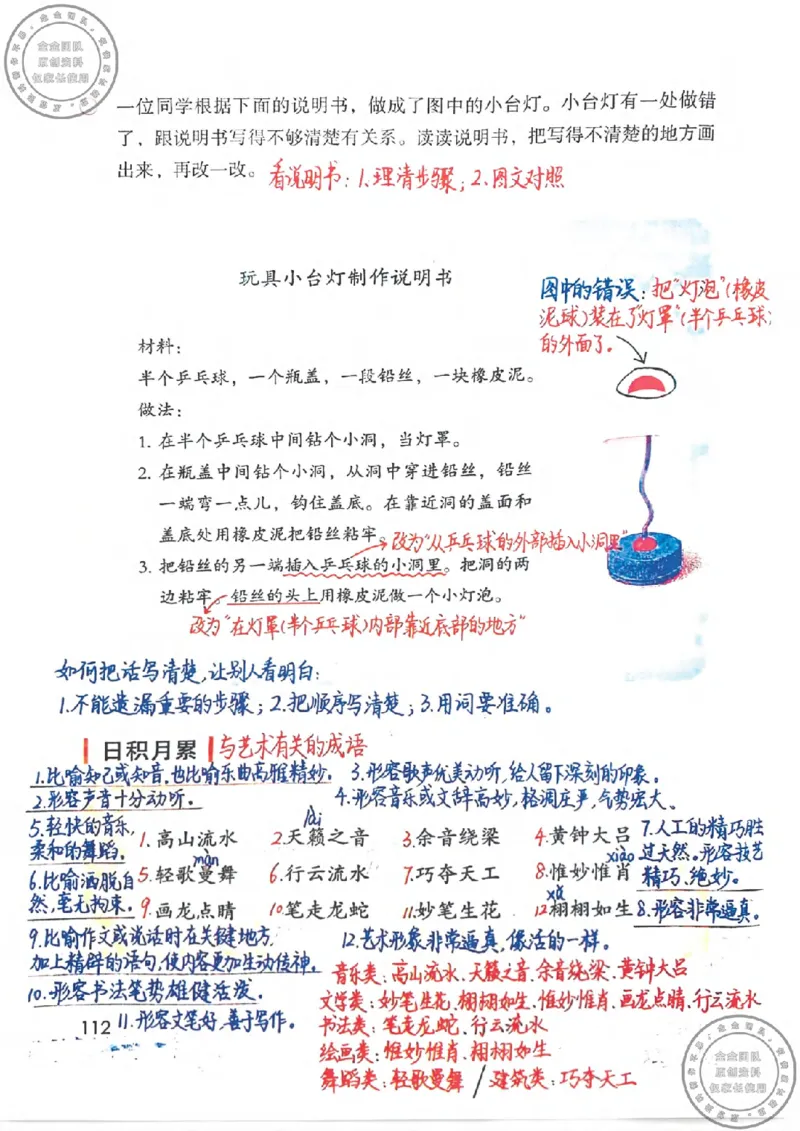 金金团队
原创资料
仅家长使用
一位同学根据下面的说明书，做成了图中的小台灯。小台灯有一处做错
了，跟说明书写得不够清楚有关系。读读说明书，把写得不清楚的地方画
出来，再改一改。看说明书：1.理清步骤；2.图文对照
玩具小台灯制作说明书
图中的错误：把“灯泡”（橡皮
泥球）装在了“灯罩”（半个乒乓球）
的外面了。
材料：
半个乒乓球，一个瓶盖，一段铅丝，一块橡皮泥。
做法：
1. 在半个乒乓球中间钻个小洞，当灯罩。
2. 在瓶盖中间钻个小洞，从洞中穿进铅丝，铅丝
一端弯一点儿，钩住盖底。在靠近洞的盖面和
盖底处用橡皮泥把铅丝粘牢。
改为“从乒乓球的外部插入小洞里”
3. 把铅丝的另一端插入乒乓球的小洞里。把洞的两
边粘牢。铅丝的头上用橡皮泥做一个小灯泡。
改为“在灯罩（半个乒乓球）内部靠近底部的地方”
如何把话写清楚，让别人看明白：
1.不能遗漏重要的步骤；2.把顺序写清楚；3.用词要准确。
日积月累 与艺术有关的成语
1.比喻知己或知音，也比喻乐曲高雅精妙。 3.形容歌声优美动听，给人留下深刻的印象。
2.形容声音十分动听。 4.形容音乐或文辞高妙，格调庄严，气势宏大。
5.轻快的音乐，
柔和的舞蹈。
lài
1.高山流水 2.天籁之音 3.余音绕梁 4.黄钟大吕
7.人工的精巧胜
过天然。形容技艺
精巧、绝妙。
màn xiào
6.比喻洒脱自
然，毫无拘束。
5.轻歌曼舞 6.行云流水 7.巧夺天工 8.惟妙惟肖
xǔ
9.画龙点睛 10.笔走龙蛇 11.妙笔生花 12.栩栩如生 8.形容非常逼真。
9.比喻作文或说话时在关键地方
加上精辟的语句，使内容更加生动传神。
12.艺术形象非常逼真，像活的一样。
10.形容书法笔势雄健活泼。
音乐类：高山流水、天籁之音、余音绕梁、黄钟大吕
文学类：妙笔生花、栩栩如生、惟妙惟肖、画龙点睛、行云流水
112 11.形容文笔好，善于写作。
书法类：笔走龙蛇、行云流水
绘画类：惟妙惟肖、栩栩如生
舞蹈类：轻歌曼舞 / 建筑类：巧夺天工
金金团队
原创资料
仅家长使用